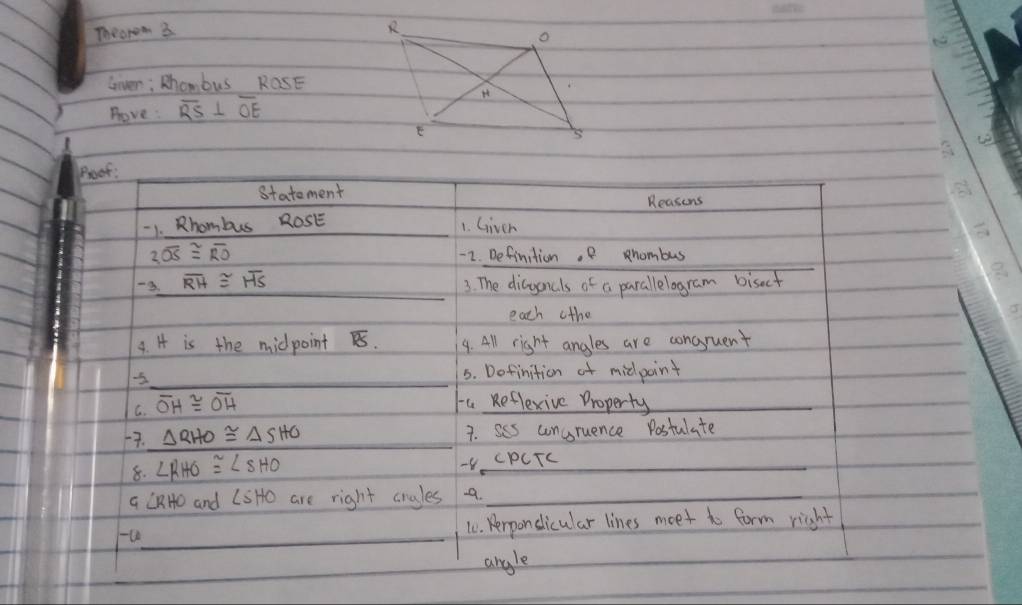 Theorem 3
R
O
Given: Rhombus ROSE
H
Prove: RS ⊥ OE
E
S
Proof:
Statement
Reasons
1. Rhombus ROSE
1. Given
2. OS ≅ RO
2. Definition of Rhombus
3. RH ≅ HS
3. The diagonals of a parallelogram bisect
each othe
4. H is the midpoint RS.
4. All right angles are congruent
5.
5. Definition of midpoint
6. OH ≅ OH
6 Reflexive Property
7. △RHO ≅ △SHO
7. SSS congruence Postulate
8. ∠RHO ≅ ∠SHO
8. CPCTC
9 ∠RHO and ∠SHO are right angles
9.
10
10. Perpendicular lines meet to form right
angle
2
3
20